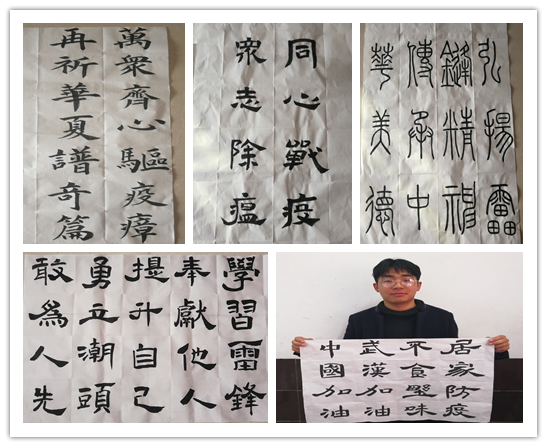 萬衆齊心驅疫瘴
再祈華夏譜奇篇
同心戰疫
衆志除瘟
弘揚雷
鋒精神
傳承中
華美德
學習雷鋒
奉獻他人
提升自己
勇立潮頭
敢為人先
居家防疫
不食野味
武漢加油
中國加油